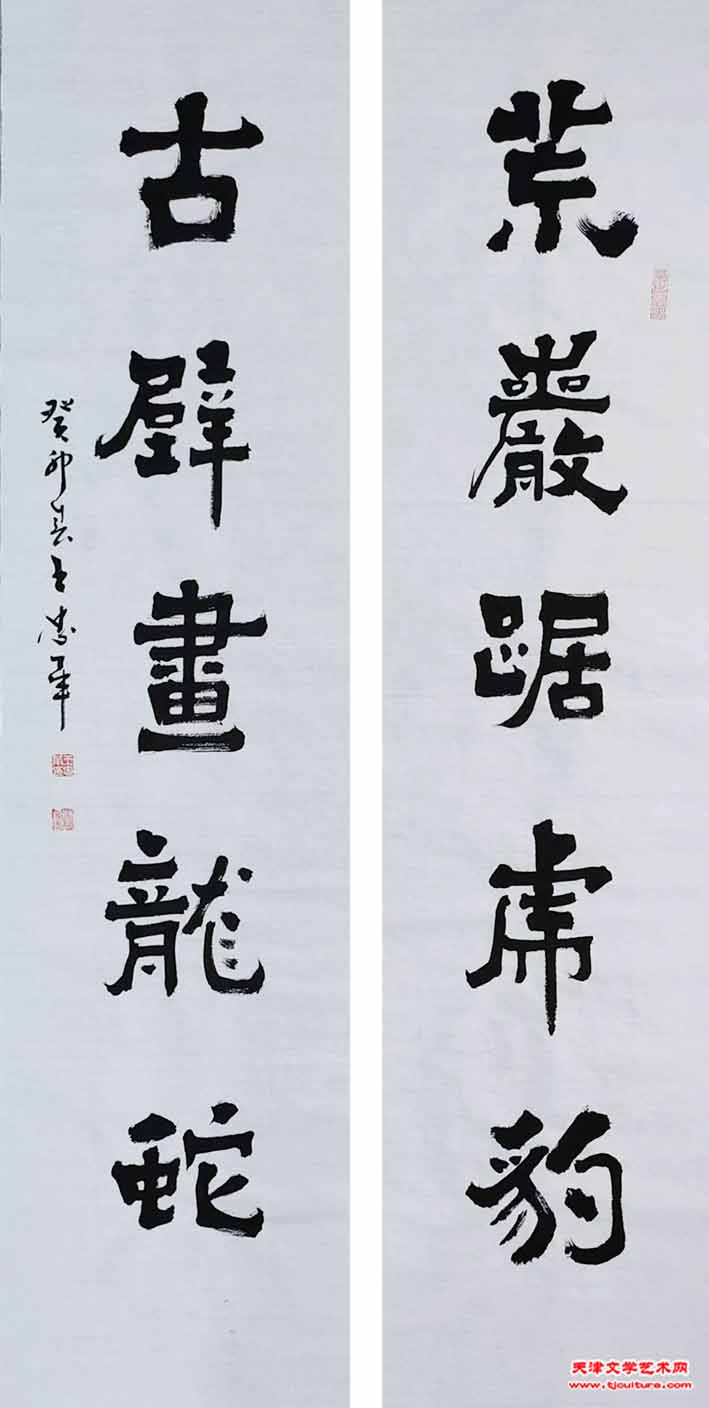 荒巖踞虎豹
古壁畫龍蛇
癸卯春
天津文学艺术网
www.tjculture.com